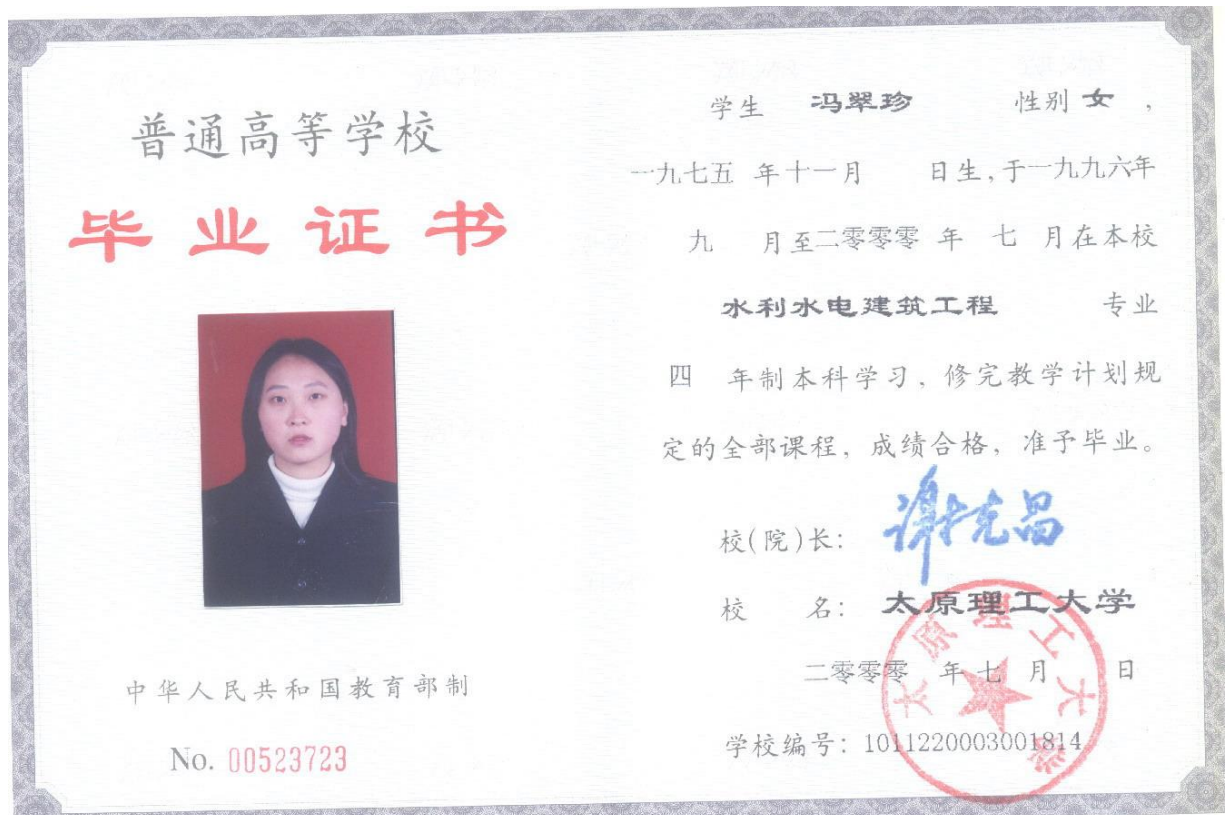 普通高等学校
毕业证书
中华人民共和国教育部制
No. 00523723
学生 冯翠珍 性别 女 ，
一九七五 年十一月 日生，于一九九六年
九 月至二零零零 年 七 月在本校
水利水电建筑工程 专业
四 年制本科学习、修完教学计划规
定的全部课程，成绩合格，准予毕业。
校(院)长： 谢克昌
校 名： 太原理工大学
二零零零 年 七 月 日
学校编号：1011220003001814
太原理工大学